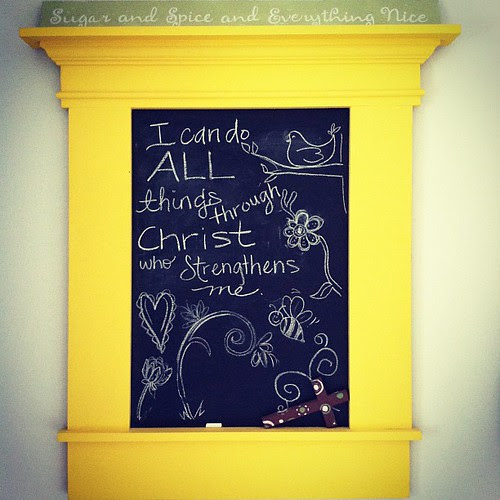 Sugar and Spice and Everything Nice
I can do
ALL
things through
Christ
who Strengthens
me.